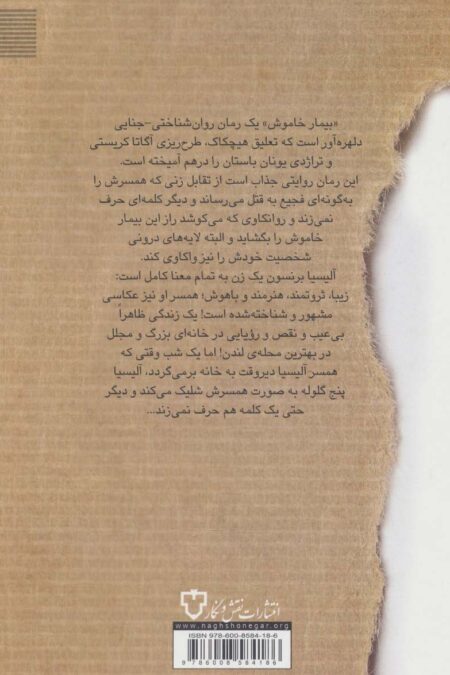 «بیمار خاموش» یک رمان روان‌شناختی-جنایی
دلهره‌آور است که تعلیق هیچکاک، طرح‌ریزی آگاتا کریستی
و تراژدی یونان باستان را درهم آمیخته است.
این رمان روایتی جذاب است از تقابل زنی که همسرش را
به‌گونه‌ای فجیع به قتل می‌رساند و دیگر کلمه‌ای حرف
نمی‌زند و روانکاوی که می‌کوشد راز این بیمار
خاموش را بگشاید و البته لایه‌های درونی
شخصیت خودش را نیز واکاوی کند.
آلیسیا برنسون یک زن به تمام معنا کامل است:
زیبا، ثروتمند، هنرمند و باهوش؛ همسر او نیز عکاسی
مشهور و شناخته‌شده است! یک زندگی ظاهراً
بی‌عیب و نقص و رؤیایی در خانه‌ای بزرگ و مجلل
در بهترین محله‌ی لندن! اما یک شب وقتی که
همسر آلیسیا دیروقت به خانه برمی‌گردد، آلیسیا
پنج گلوله به صورت همسرش شلیک می‌کند و دیگر
حتی یک کلمه هم حرف نمی‌زند...
انتشارات نقش و نگار
www.naghshonegar.org
ISBN 978-600-8584-18-6
9 786008 584186